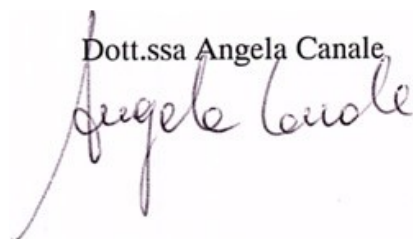 Dott.ssa Angela Canale
Angela Canale